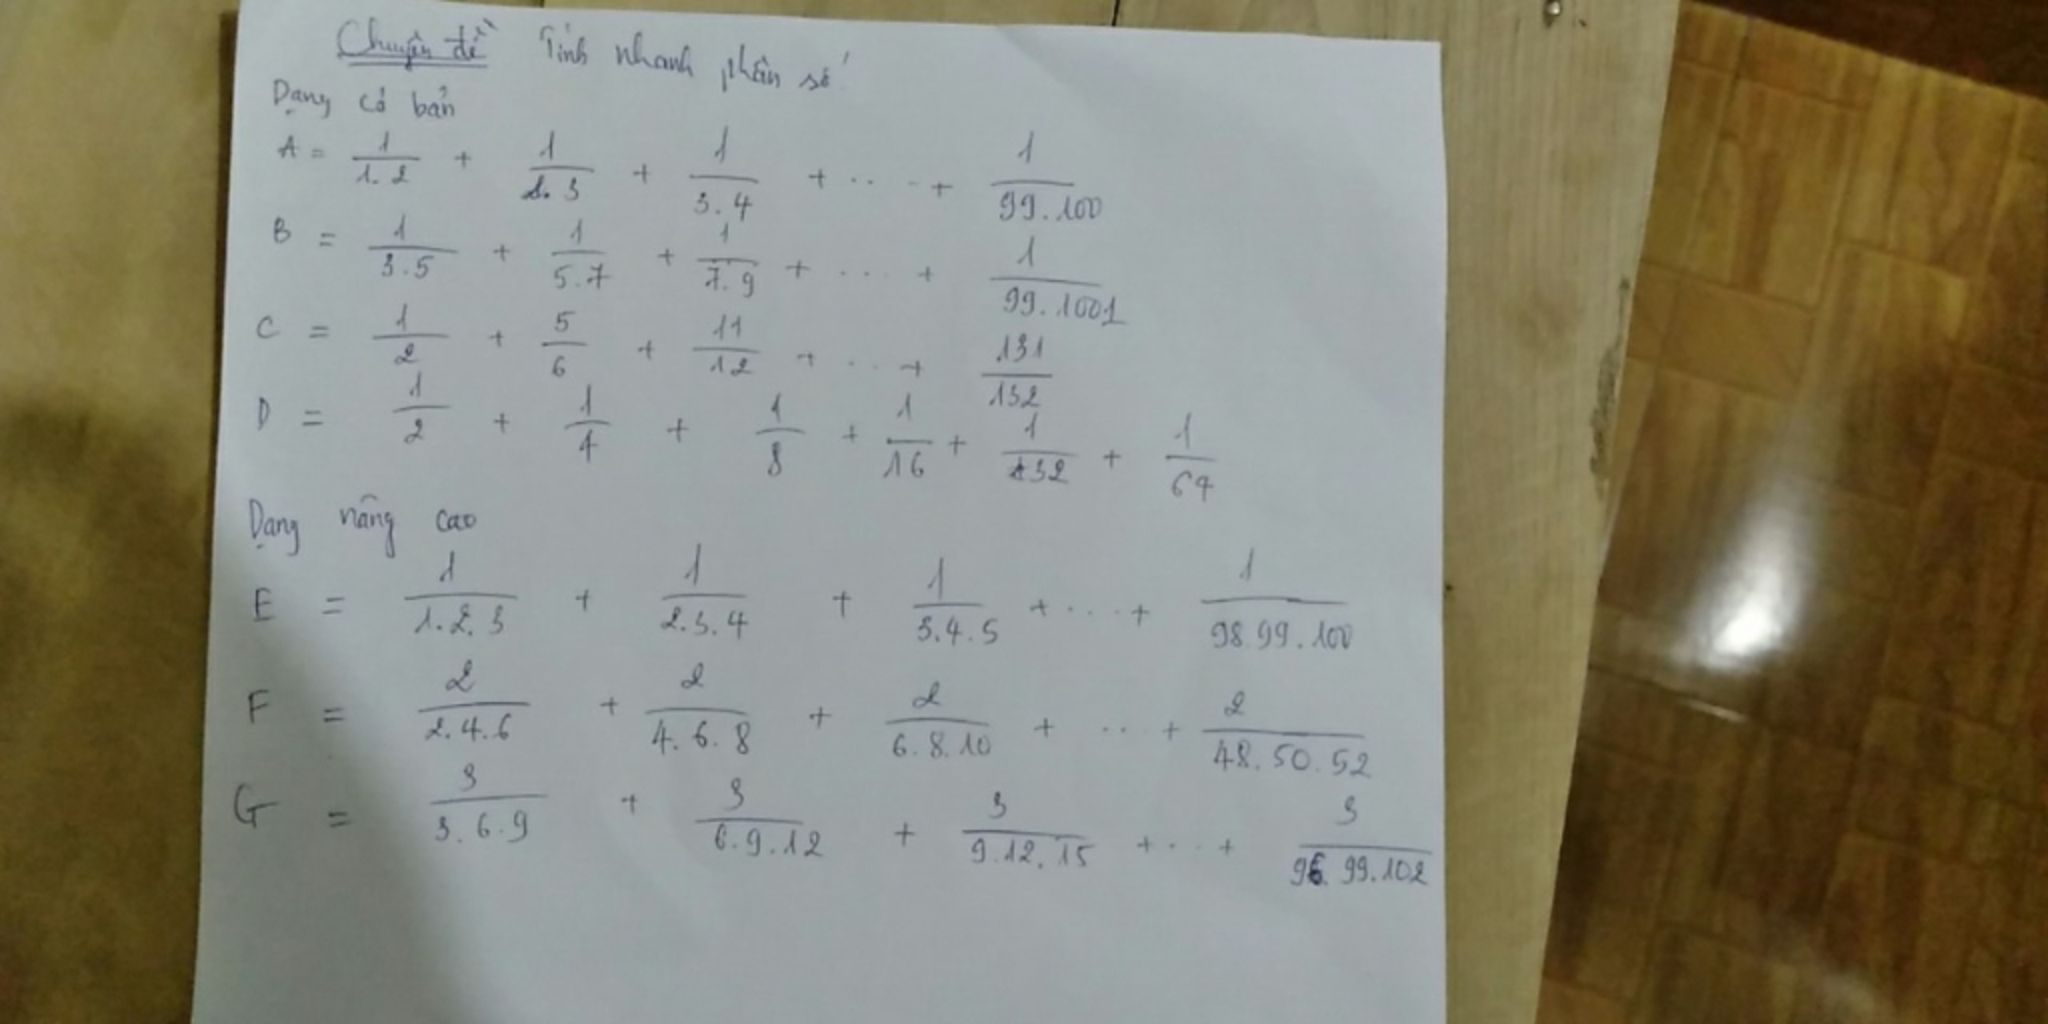 Chuyên đề Tính nhanh phân số
Dạng cơ bản
A = 1/1.2 + 1/2.3 + 1/3.4 + ... + 1/99.100
B = 1/3.5 + 1/5.7 + 1/7.9 + ... + 1/99.1001
C = 1/2 + 5/6 + 11/12 + ... + 131/132
D = 1/2 + 1/4 + 1/8 + 1/16 + 1/32 + 1/64
Dạng nâng cao
E = 1/1.2.3 + 1/2.3.4 + 1/3.4.5 + ... + 1/98.99.100
F = 2/2.4.6 + 2/4.6.8 + 2/6.8.10 + ... + 2/48.50.52
G = 3/3.6.9 + 3/6.9.12 + 3/9.12.15 + ... + 3/96.99.102